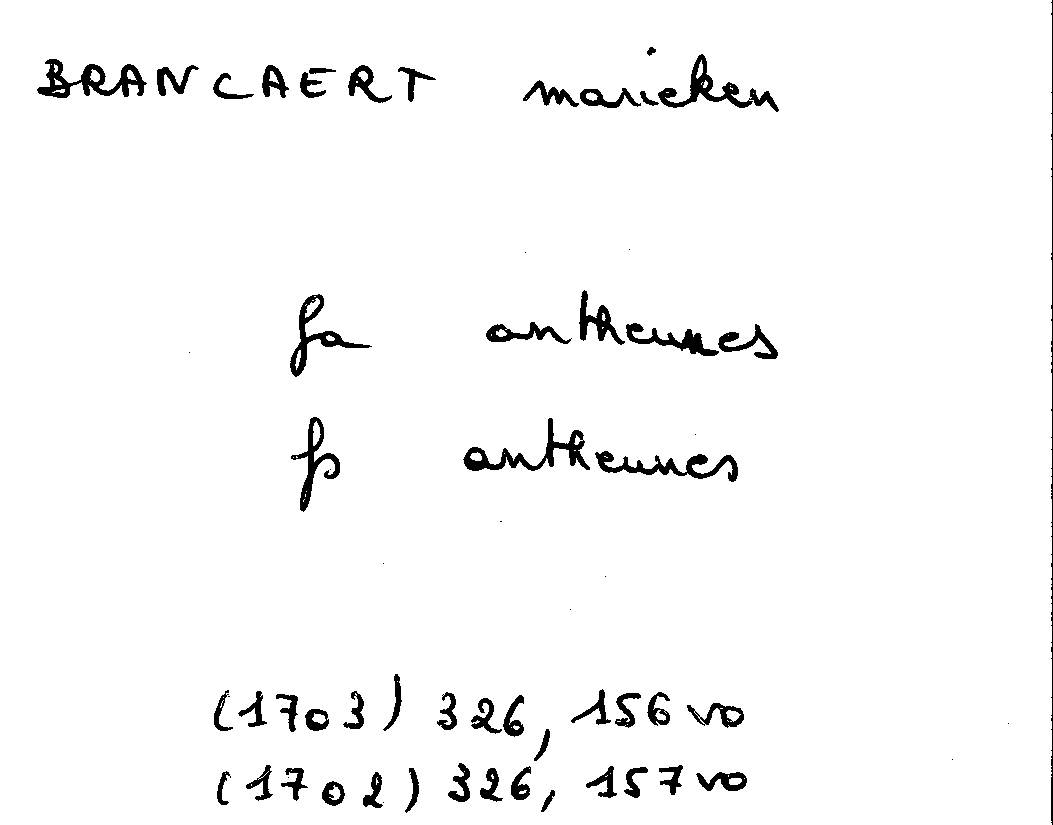 BRANCAERT marieken
fa antheunes
fs antheunes
(1703) 326, 156 vo
(1702) 326, 157 vo